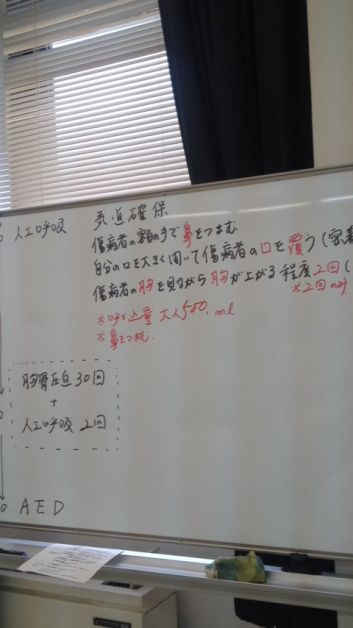 人工呼吸
気道確保
傷病者の額の手で鼻をつまむ
自分の口を大きく開いて傷病者の口を覆う(密着
傷病者の胸を見ながら胸が上がる程度2回(
※2回のみ
※吹き込量 大人500.ml
※鼻をつまむ.
胸骨圧迫 30回
+
人工呼吸 2回
AED